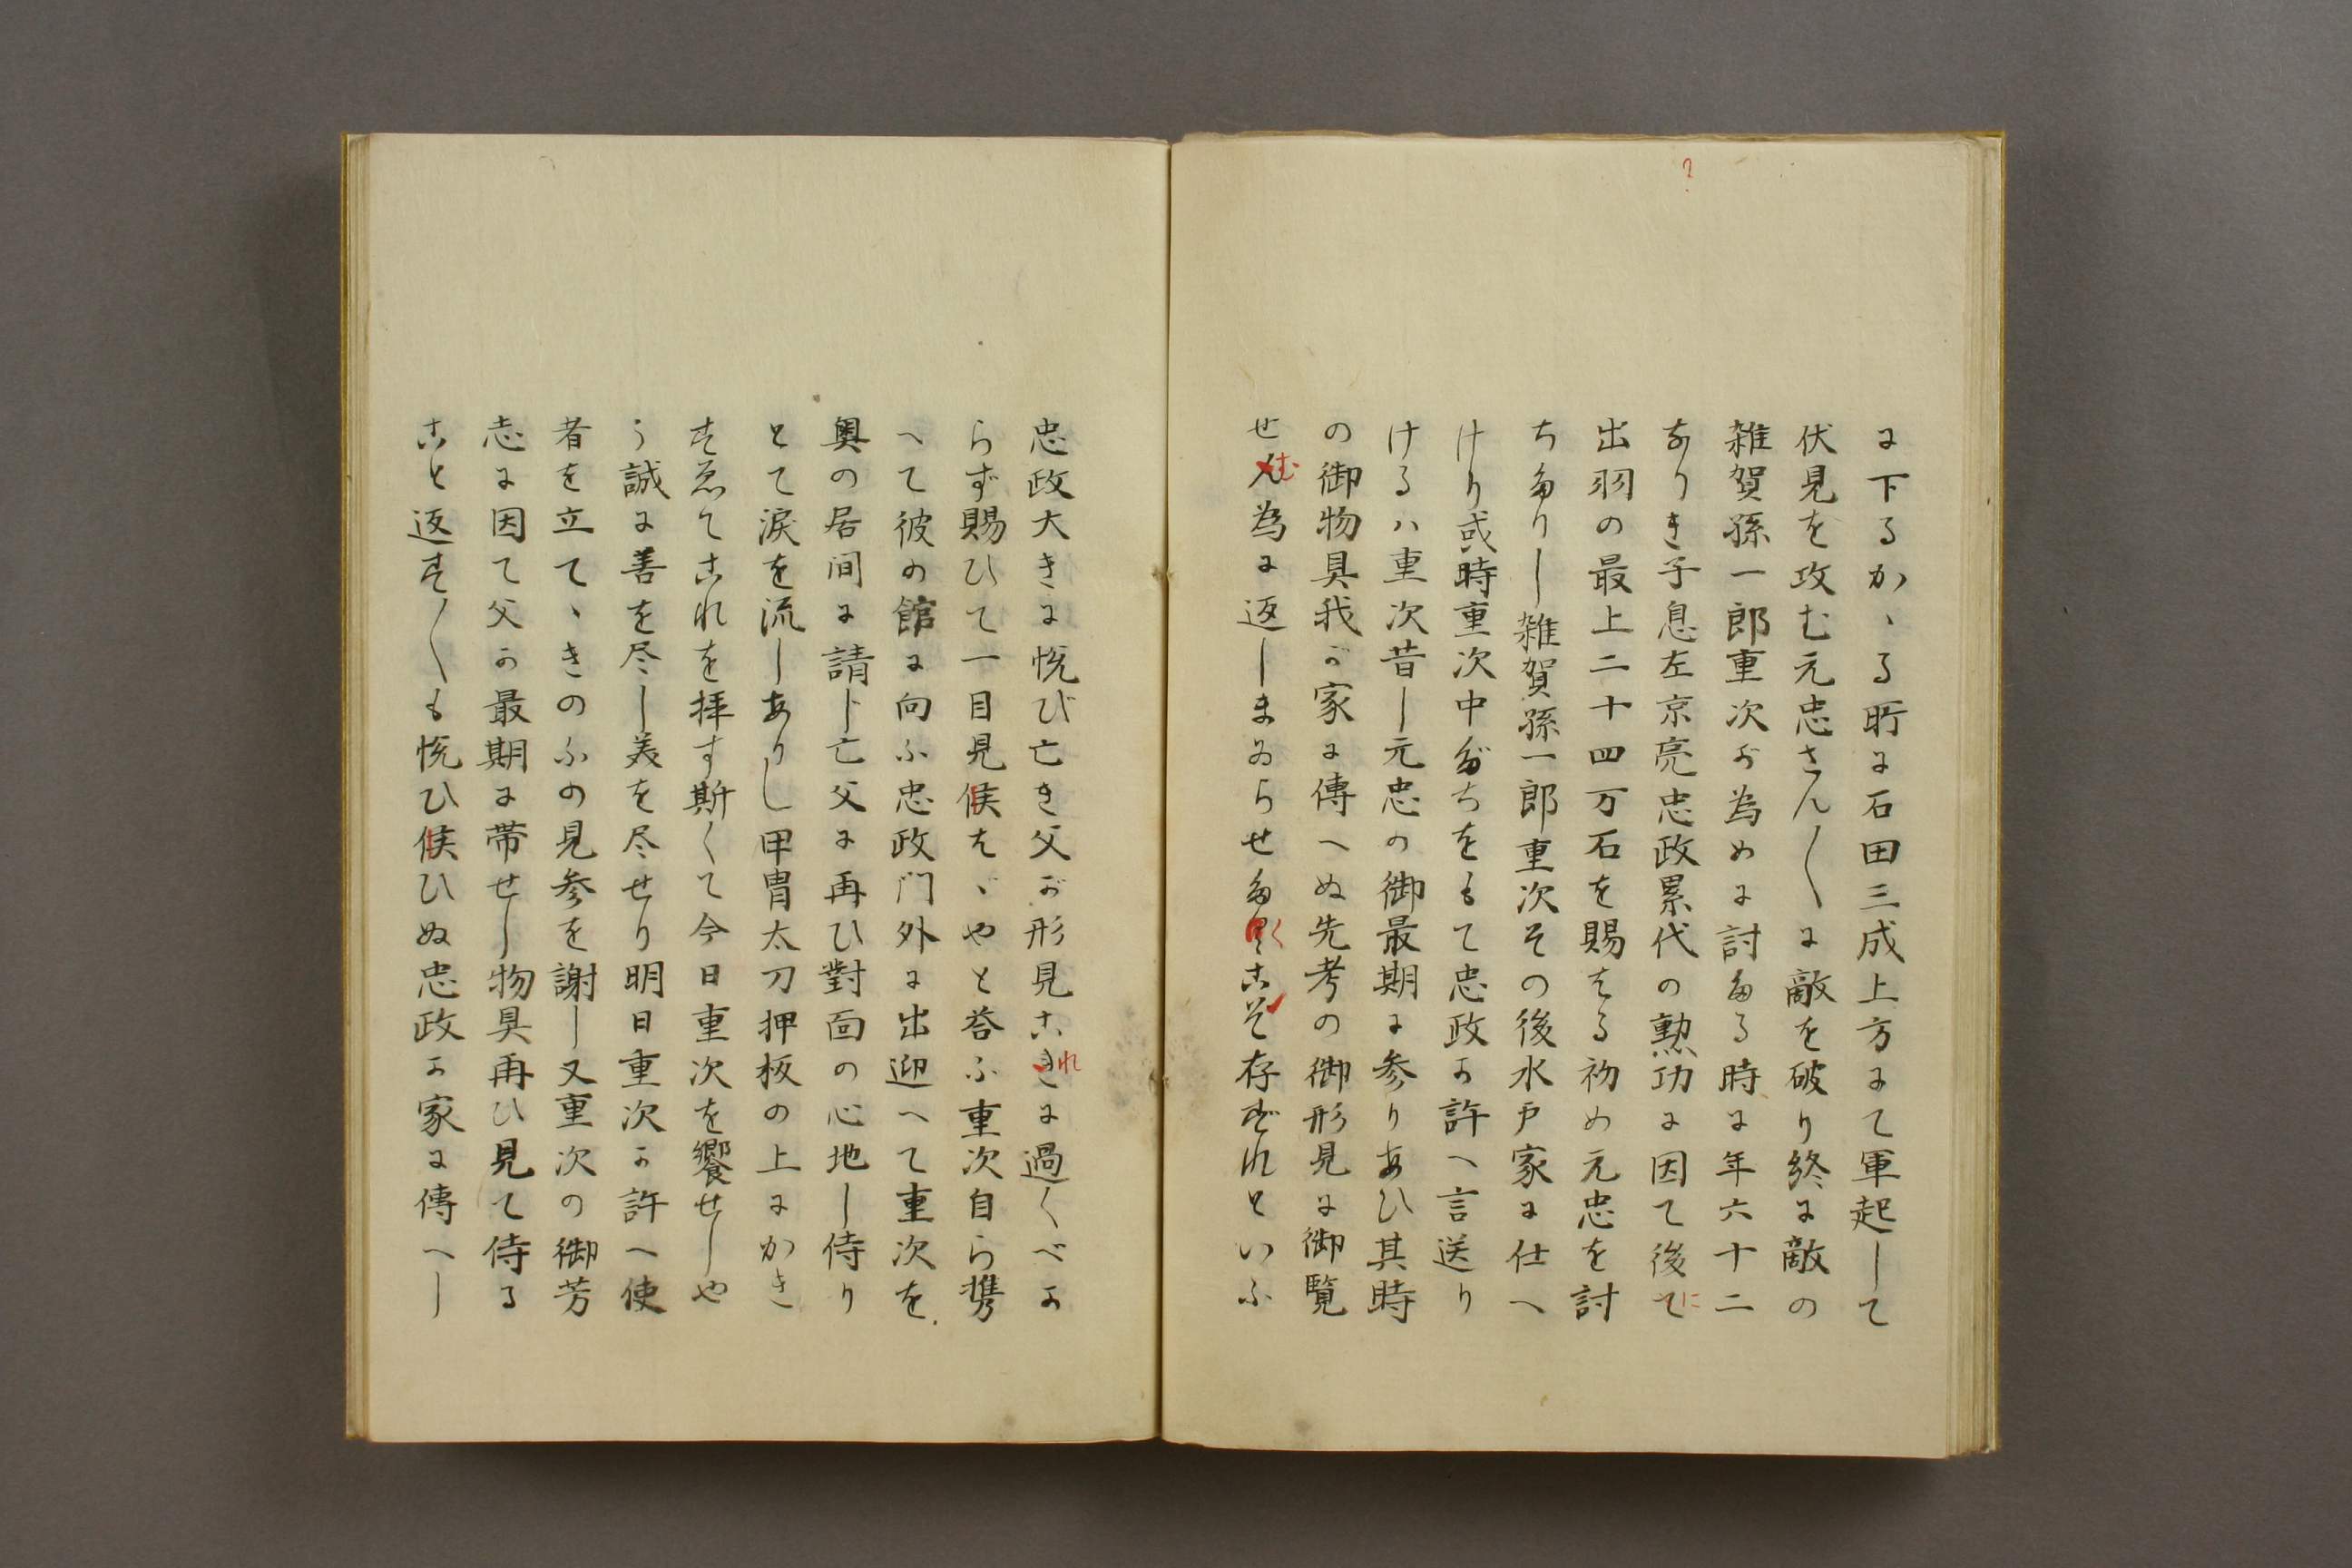 に下るかゝる所に石田三成上方にて軍起して
伏見を攻む元忠さん〳〵に敵を破り終に敵の
雑賀孫一郎重次が為めに討たる時に年六十二
なりき子息左京亮忠政累代の勲功に因て後てに
出羽の最上二十四万石を賜はる初め元忠を討
ちたりし雑賀孫一郎重次その後水戸家に仕へ
けり或時重次中だちをもて忠政か許へ言送り
けるハ重次昔し元忠の御最期に参りあひ其時
の御物具我が家に傳へぬ先考の御形見に御覧
せんむ為に返しまゐらせたくこそ存ずれといふ
忠政大きに悦び亡き父が形見これに過くべか
らず賜ひて一目見候はゞやと答ふ重次自ら携
へて彼の館に向ふ忠政門外に出迎へて重次を
奥の居間に請じ亡父に再ひ對面の心地し侍り
とて涙を流しありし甲冑太刀押板の上にかき
すゑてこれを拝す斯くて今日重次を饗せしや
う誠に善を尽し美を尽せり明日重次か許へ使
者を立てゝきのふの見参を謝し又重次の御芳
志に因て父の最期に帯せし物具再ひ見て侍る
こと返す〳〵も悦ひ候ひぬ忠政か家に傳へし